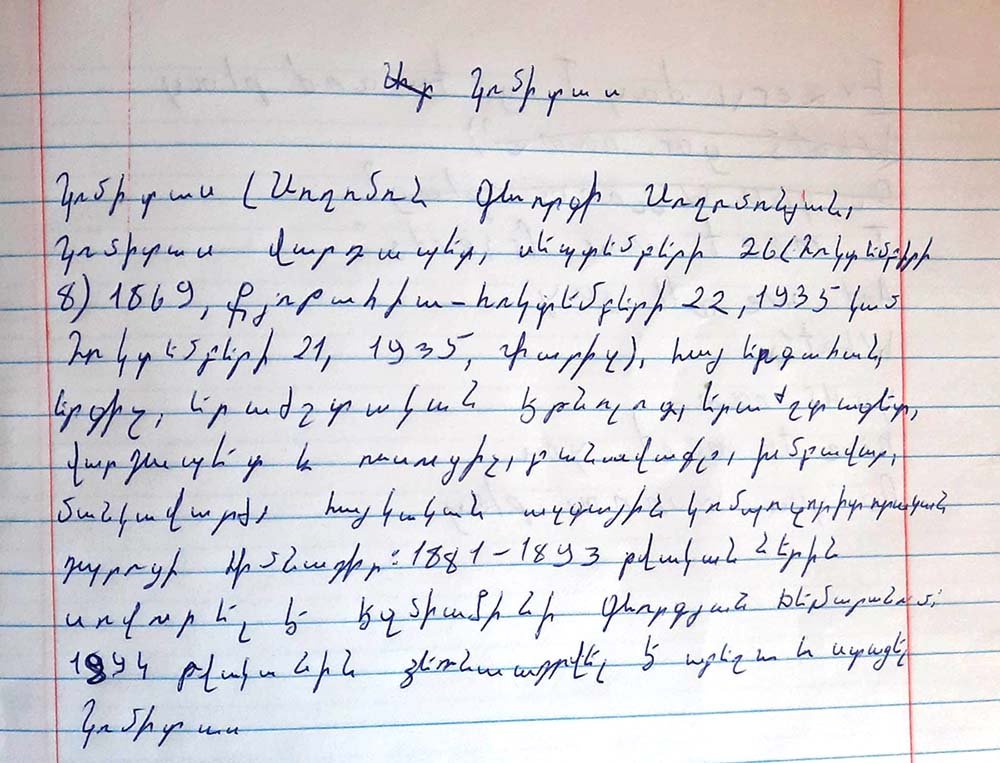 Կոմիտաս
Կոմիտաս (Սողոմոն Գևորգի Սողոմոնյան,
Կոմիտաս վարդապետ, սեպտեմբերի 26 (հոկտեմբերի
8) 1869, Քյոթահիա - հոկտեմբերի 22, 1935 կամ
հոկտեմբերի 21, 1935, Փարիզ), հայ երգահան,
երգիչ, երաժշտական էթնոլոգ, երաժշտագետ,
վարդապետ և ուսուցիչ, բանասվագիր, խմբավար,
մանկավարժ, հայկական ազգային կոմպոզիտորական
դպրոցի հիմնադիր։ 1881-1893 թվականներին
սովորել է Էջմիածինի Գևորգյան ճեմարանում։
1894 թվականին ձեռնադրվել է աբեղա և ստացել
Կոմիտաս